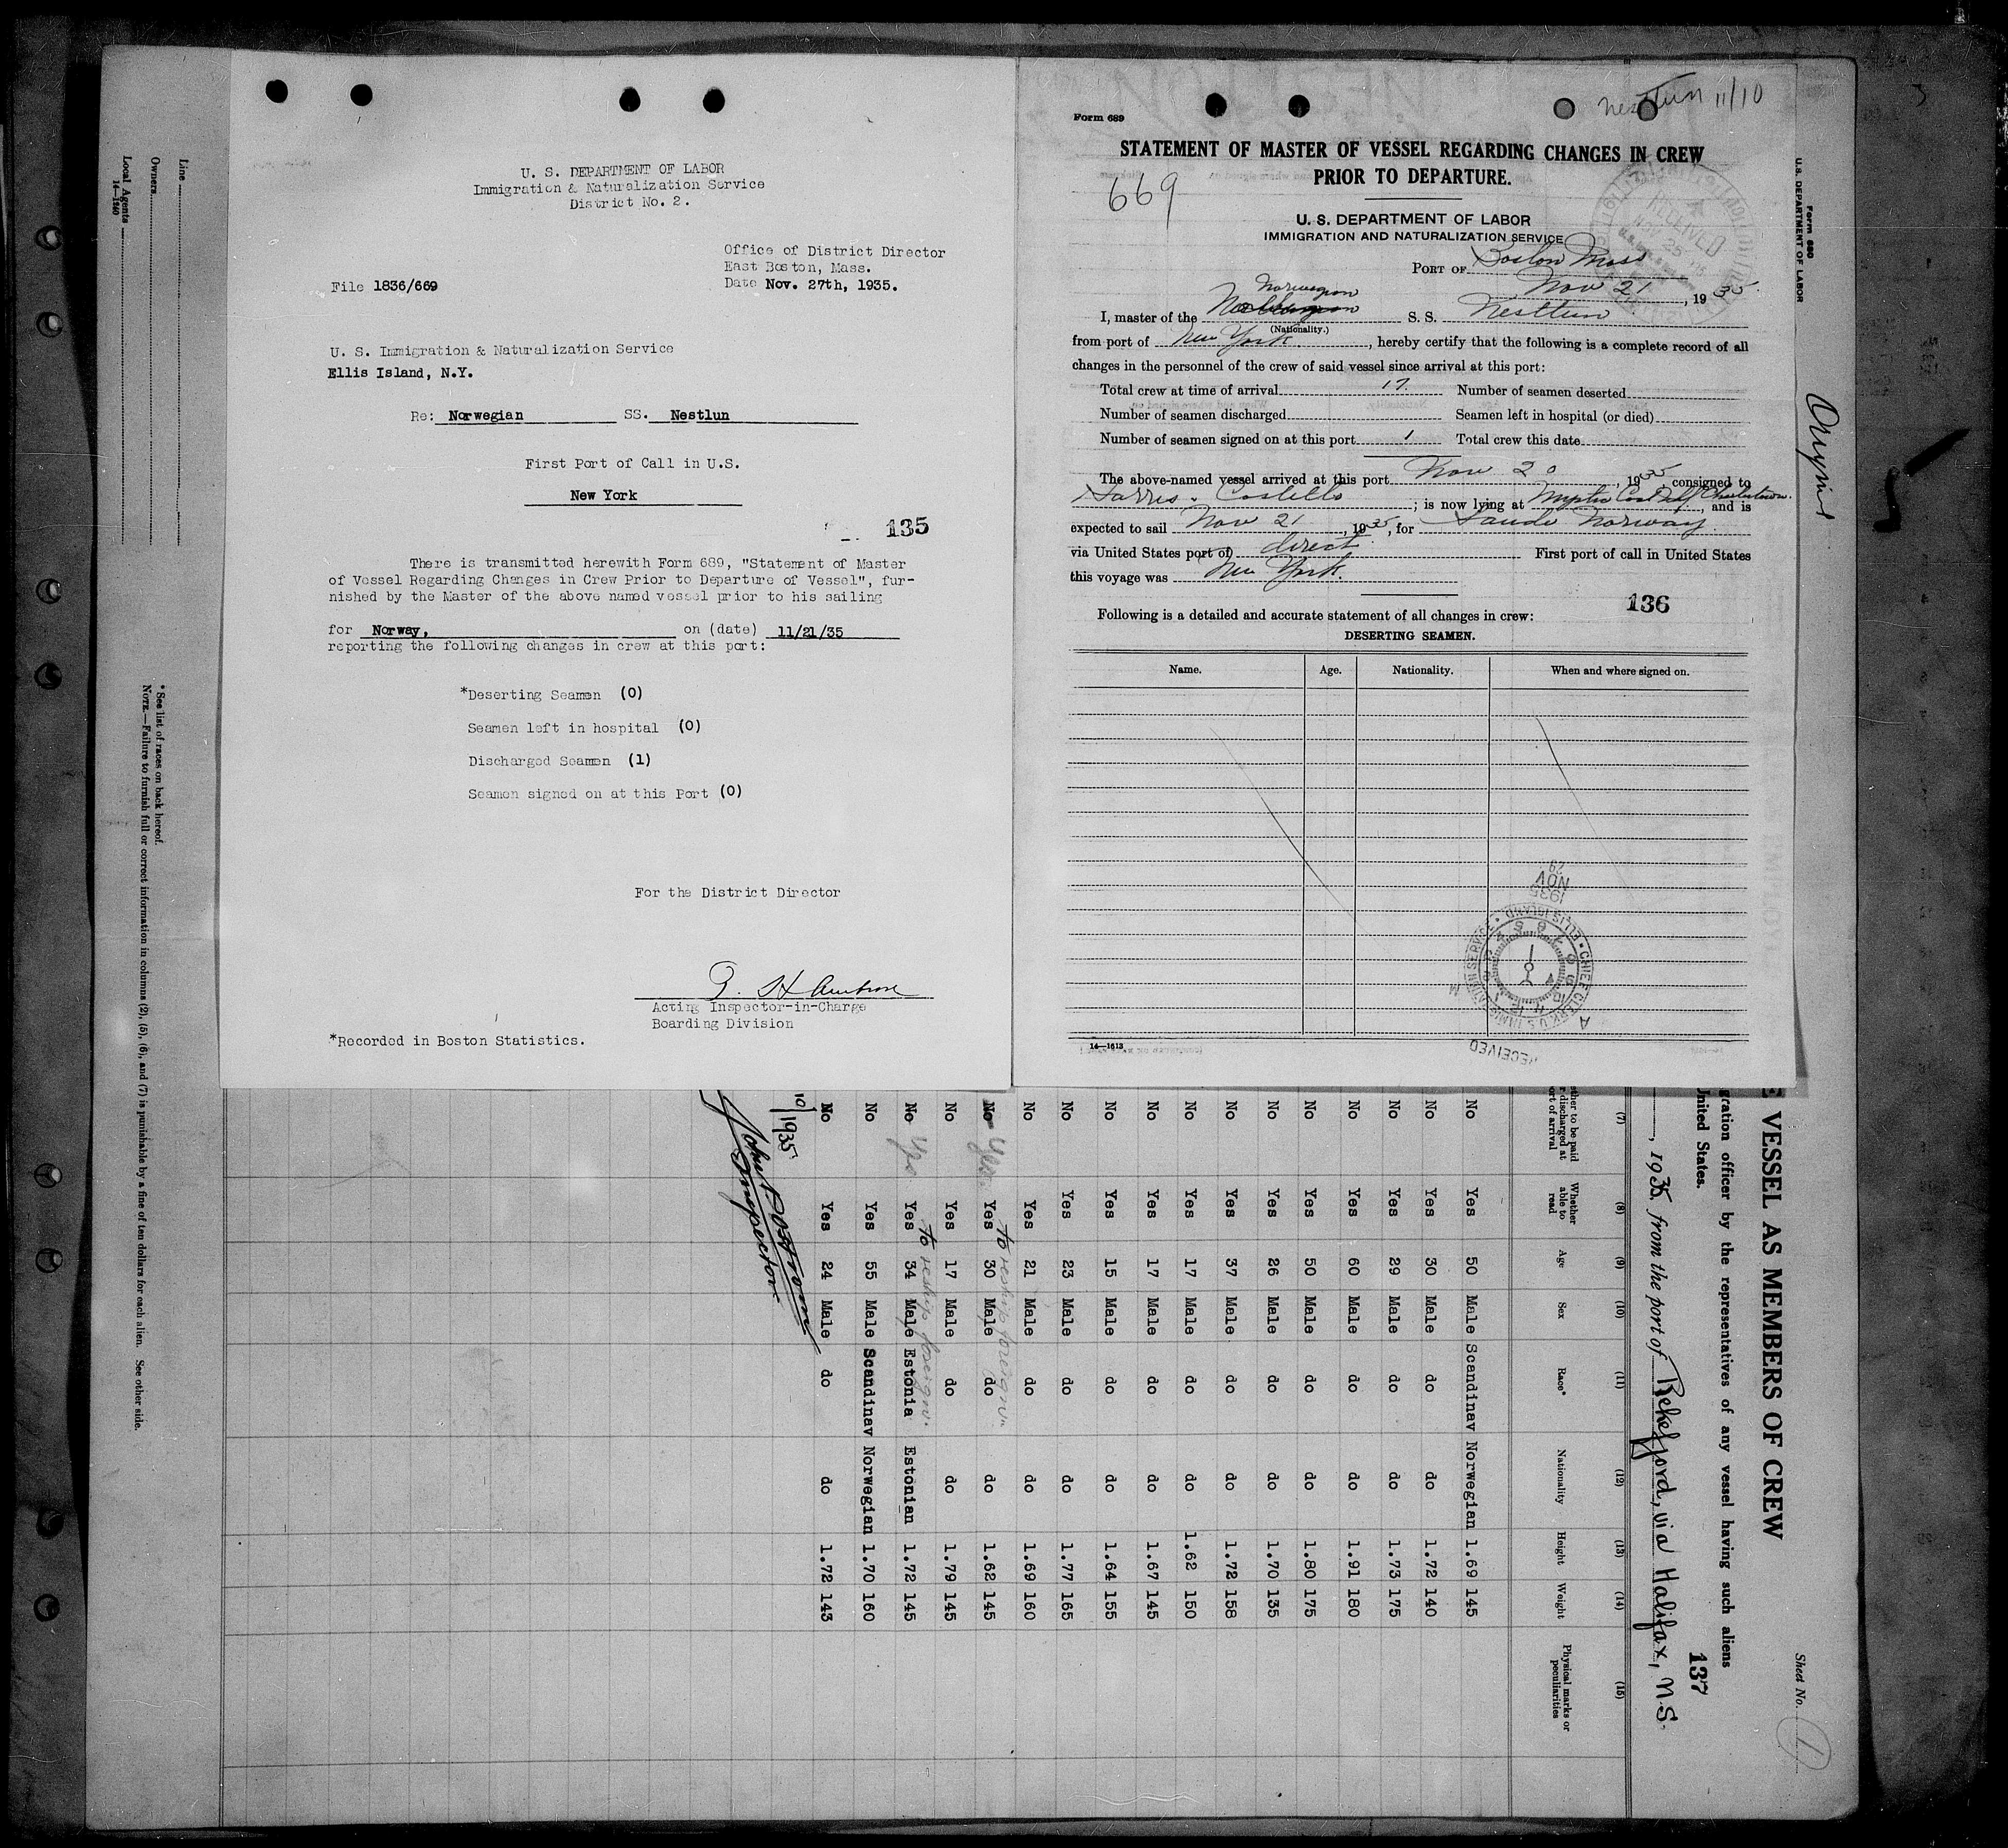 U. S. DEPARTMENT OF LABOR
Immigration & Naturalization Service
District No. 2.
Office of District Director
East Boston, Mass.
Date Nov. 27th, 1935.
File 1836/669
U. S. Immigration & Naturalization Service
Ellis Island, N.Y.
Re: Norwegian SS. Nestlun
First Port of Call in U.S.
New York
135
There is transmitted herewith Form 689, "Statement of Master
of Vessel Regarding Changes in Crew Prior to Departure of Vessel", fur-
nished by the Master of the above named vessel prior to his sailing
for Norway, on (date) 11/21/35
reporting the following changes in crew at this port:
*Deserting Seamen (0)
Seamen left in hospital (0)
Discharged Seamen (1)
Seamen signed on at this Port (0)
For the District Director
Acting Inspector-in-Charge
Boarding Division
*Recorded in Boston Statistics.
Nesttun 11/10
Form 689
STATEMENT OF MASTER OF VESSEL REGARDING CHANGES IN CREW
PRIOR TO DEPARTURE.
669
U. S. DEPARTMENT OF LABOR
IMMIGRATION AND NATURALIZATION SERVICE
PORT OF Boston Mass
Nov 21, 1935
Norwegian
I, master of the S. S. Nesttun
(Nationality.)
from port of New York, hereby certify that the following is a complete record of all
changes in the personnel of the crew of said vessel since arrival at this port:
Total crew at time of arrival 17. Number of seamen deserted
Number of seamen discharged Seamen left in hospital (or died)
Number of seamen signed on at this port 1 Total crew this date
The above-named vessel arrived at this port Nov 20, 1935, consigned to
Costello; is now lying at Mystic Coal Whf Charlestown., and is
expected to sail Nov 21, 1935, for Saude Norway.
via United States port of) direct First port of call in United States
this voyage was New York.
136
Following is a detailed and accurate statement of all changes in crew:
DESERTING SEAMEN.
Name. Age. Nationality. When and where signed on.
1935
NOV
29
RECEIVED
14—1613
Line
Owners
Local Agents
14—1240
* See list of races on back hereof.
NOTE.—Failure to furnish full or correct information in columns (2), (5), (6), and (7) is punishable by a fine of ten dollars for each alien. See other side.
Form 680
U. S. DEPARTMENT OF LABOR
Sheet No. 1
E VESSEL AS MEMBERS OF CREW
gration officer by the representatives of any vessel having such aliens
United States.
137
, 1935, from the port of Rekefjord, via Halifax, N.S.
(7) (8) (9) (10) (11) (12) (13) (14) (15)
Whether able to read
Age
Sex
Race*
Nationality
Height
Weight
Physical marks or peculiarities
No Yes 50 Male Scandinav Norwegian 1.69 145
No Yes 30 Male do do 1.72 140
No Yes 29 Male do do 1.73 175
No Yes 60 Male do do 1.91 180
No Yes 50 Male do do 1.80 175
No Yes 26 Male do do 1.70 135
No Yes 37 Male do do 1.72 158
No Yes 17 Male do do 1.62 150
No Yes 17 Male do do 1.67 145
No Yes 15 Male do do 1.64 155
No Yes 23 Male do do 1.77 165
No Yes 21 Male do do 1.69 160
to reship foreign
No Yes Yes 30 Male do do 1.62 145
No Yes 17 Male do do 1.79 145
to reship foreign
No Yes Yes 34 Male Estonia Estonian 1.72 145
No Yes 55 Male Scandinav Norwegian 1.70 160
No Yes 24 Male do do 1.72 143
10/1935
Inspector